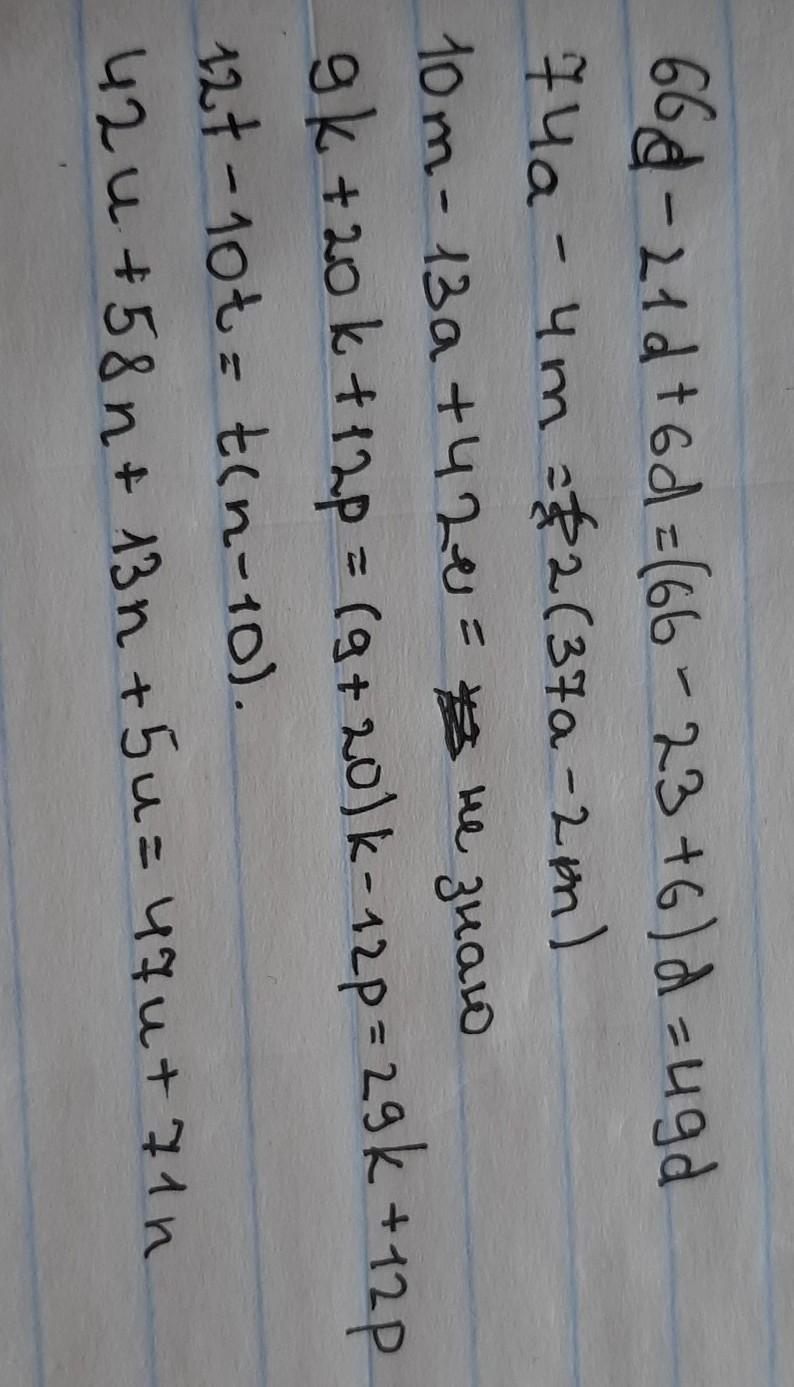 66d - 21d + 6d = (66 - 23 + 6) d = 49d
74a - 4m = 2 (37a - 2m)
10m - 13a + 42v = не знаю
9k + 20k + 12p = (9 + 20) k - 12p = 29k + 12p
12t - 10t = t(n - 10).
42u + 58n + 13n + 5u = 47u + 71n